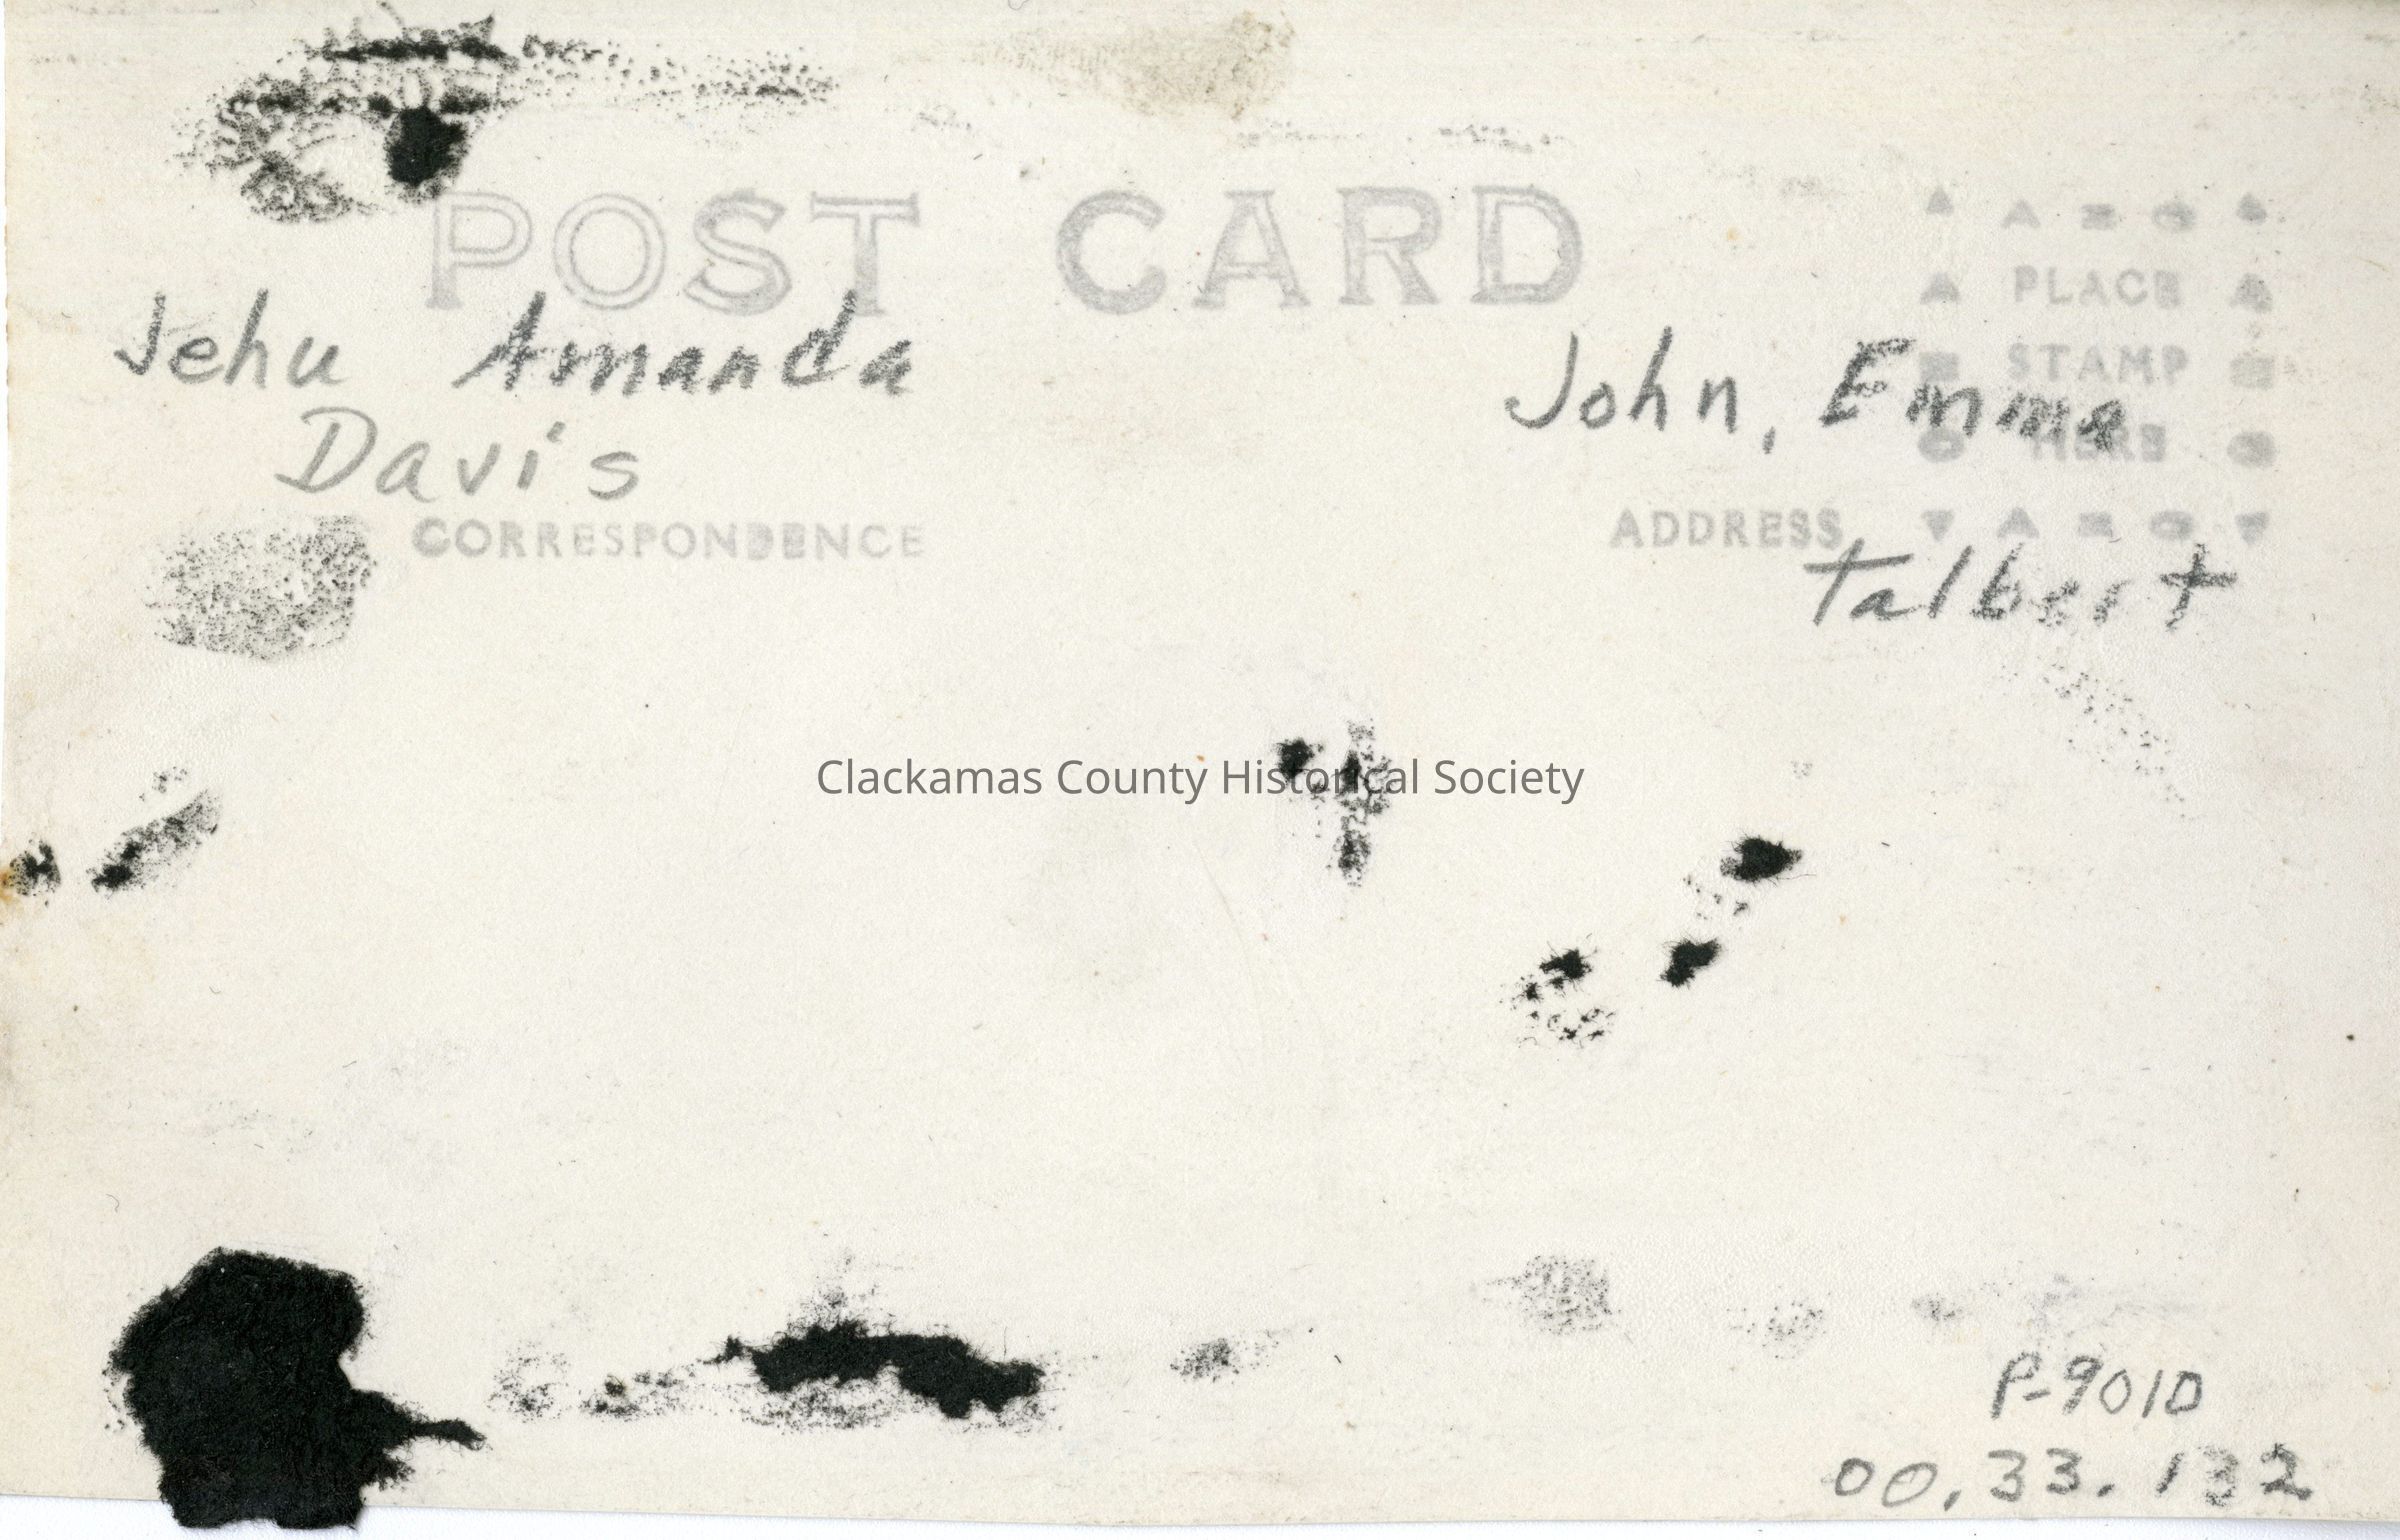 POST CARD
Jehu Amanda
Davis
CORRESPONDENCE
PLACE
STAMP
HERE
John, Emma
ADDRESS
Talbert
Clackamas County Historical Society
P-9010
00.33.132